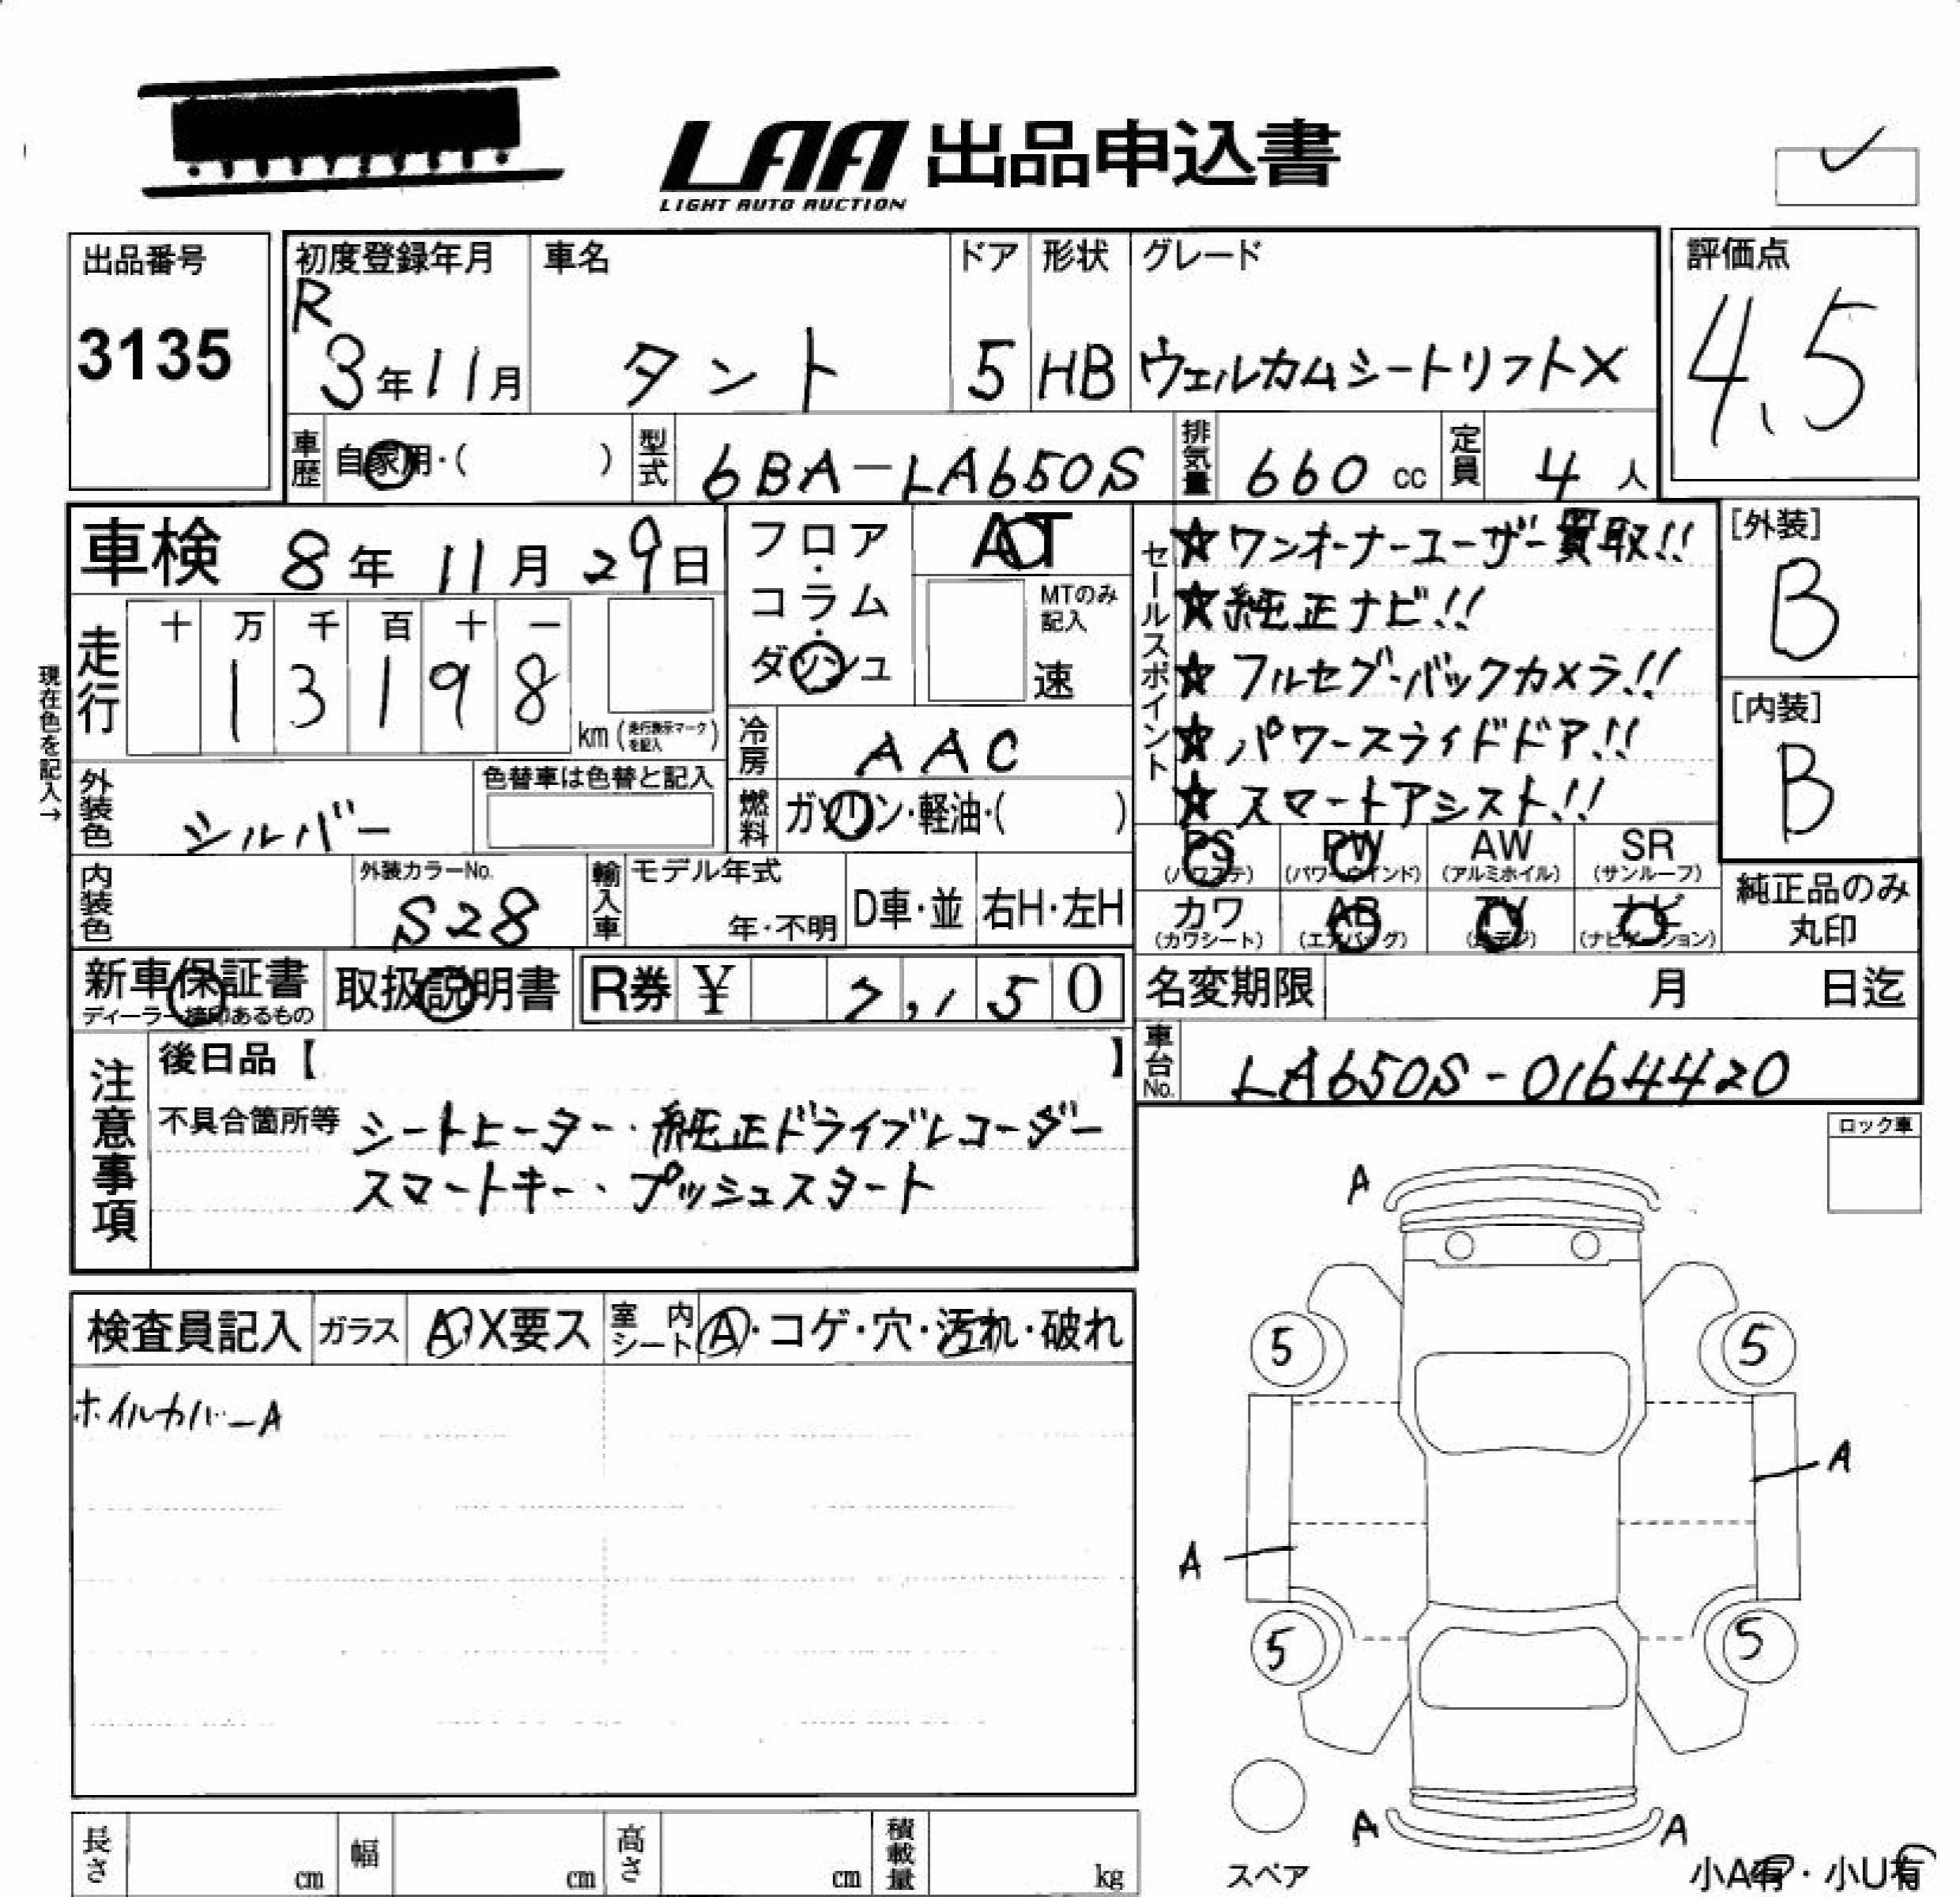 LAA 出品申込書
LIGHT AUTO AUCTION
出品番号
3135
初度登録年月
R
3年11月
車名
タント
ドア
5
形状
HB
グレード
ウェルカムシートリフトX
評価点
4.5
車歴 自家用・( )
型式 6BA-LA650S
排気量 660 cc
定員 4 人
車検 8年11月29日
フロア・コラム・ダッシュ
AT
MTのみ記入
速
走行
十 万 千 百 十 一
1 3 1 9 8
km (走行表示マークを記入)
現在色を記入→
冷房 AAC
外装色 シルバー
色替車は色替と記入
燃料 ガソリン・軽油・( )
内装色
外装カラーNo.
S28
輸入車
モデル年式
年・不明
D車・並
右H・左H
セールスポイント
☆ワンオーナーユーザー買取!!
☆純正ナビ!!
☆フルセグ・バックカメラ!!
☆パワースライドドア!!
☆スマートアシスト!!
[外装]
B
[内装]
B
PS (パワステ)
PW (パワーウインド)
AW (アルミホイル)
SR (サンルーフ)
カワ (カワシート)
AB (エアバッグ)
TV (地デジ)
ナビ (ナビゲーション)
純正品のみ
丸印
新車保証書
ディーラー捺印あるもの
取扱説明書
R券 ¥ 7,150
名変期限 月 日迄
車台No. LA650S-0164420
注意事項
後日品【 】
不具合箇所等 シートヒーター・純正ドライブレコーダー
スマートキー・プッシュスタート
ロック車
検査員記入
ガラス A・X要ス
室内シート A・コゲ・穴・汚れ・破れ
ホイルカバーA
A
5
5
A
A
5
5
A
A
スペア
小A有・小U有
長さ cm
幅 cm
高さ cm
積載量 kg